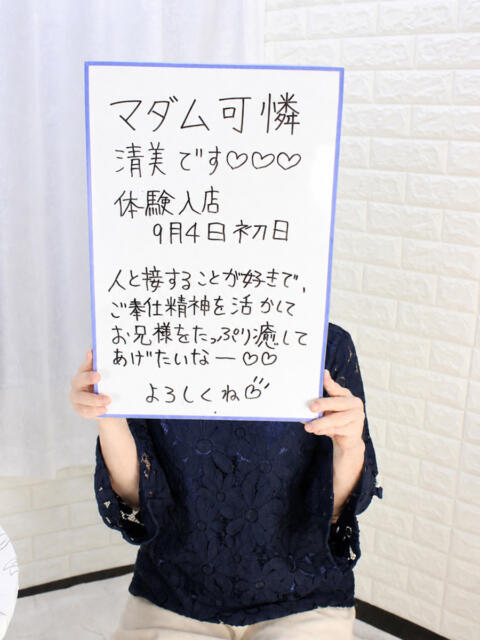 マダム可憐
清美です♡♡♡
体験入店
9月4日初日
人と接することが好きで、
ご奉仕精神を活かして
お兄様をたっぷり癒して
あげたいなー♡♡
よろしくね